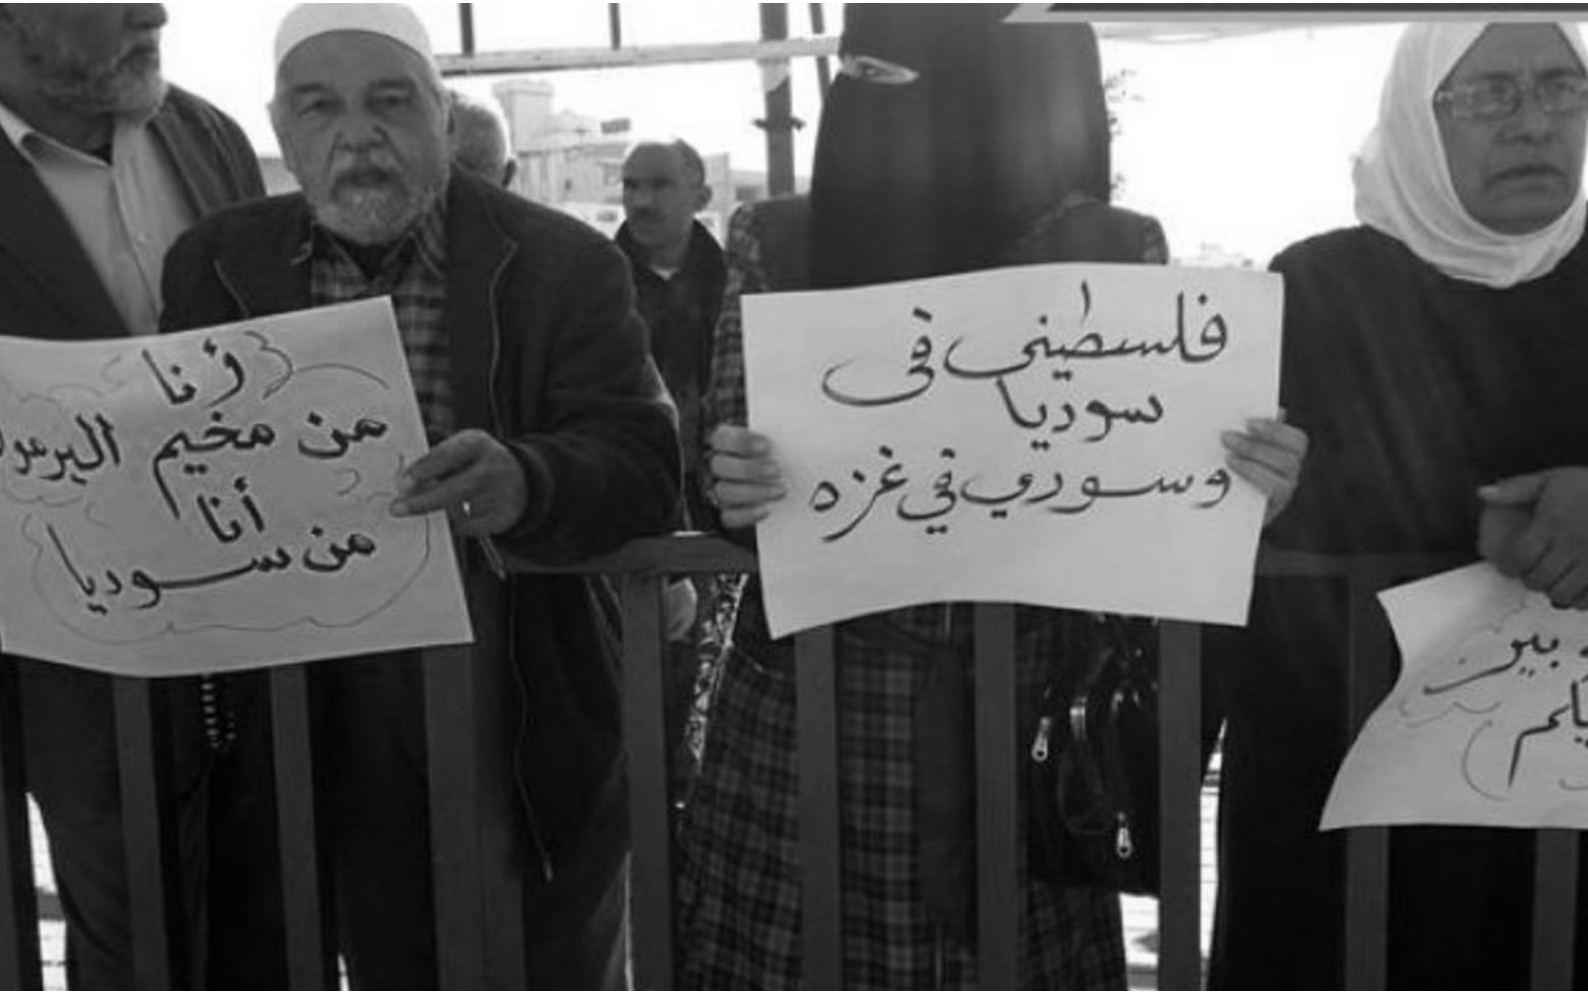 أنا
من مخيم اليرموك
أنا
من سوريا
فلسطيني في
سوريا
وسوري في غزه